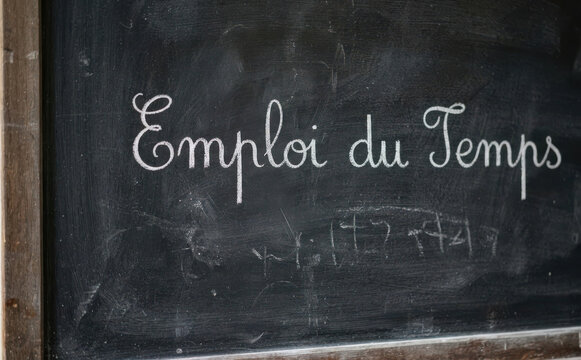 Emploi du Temps